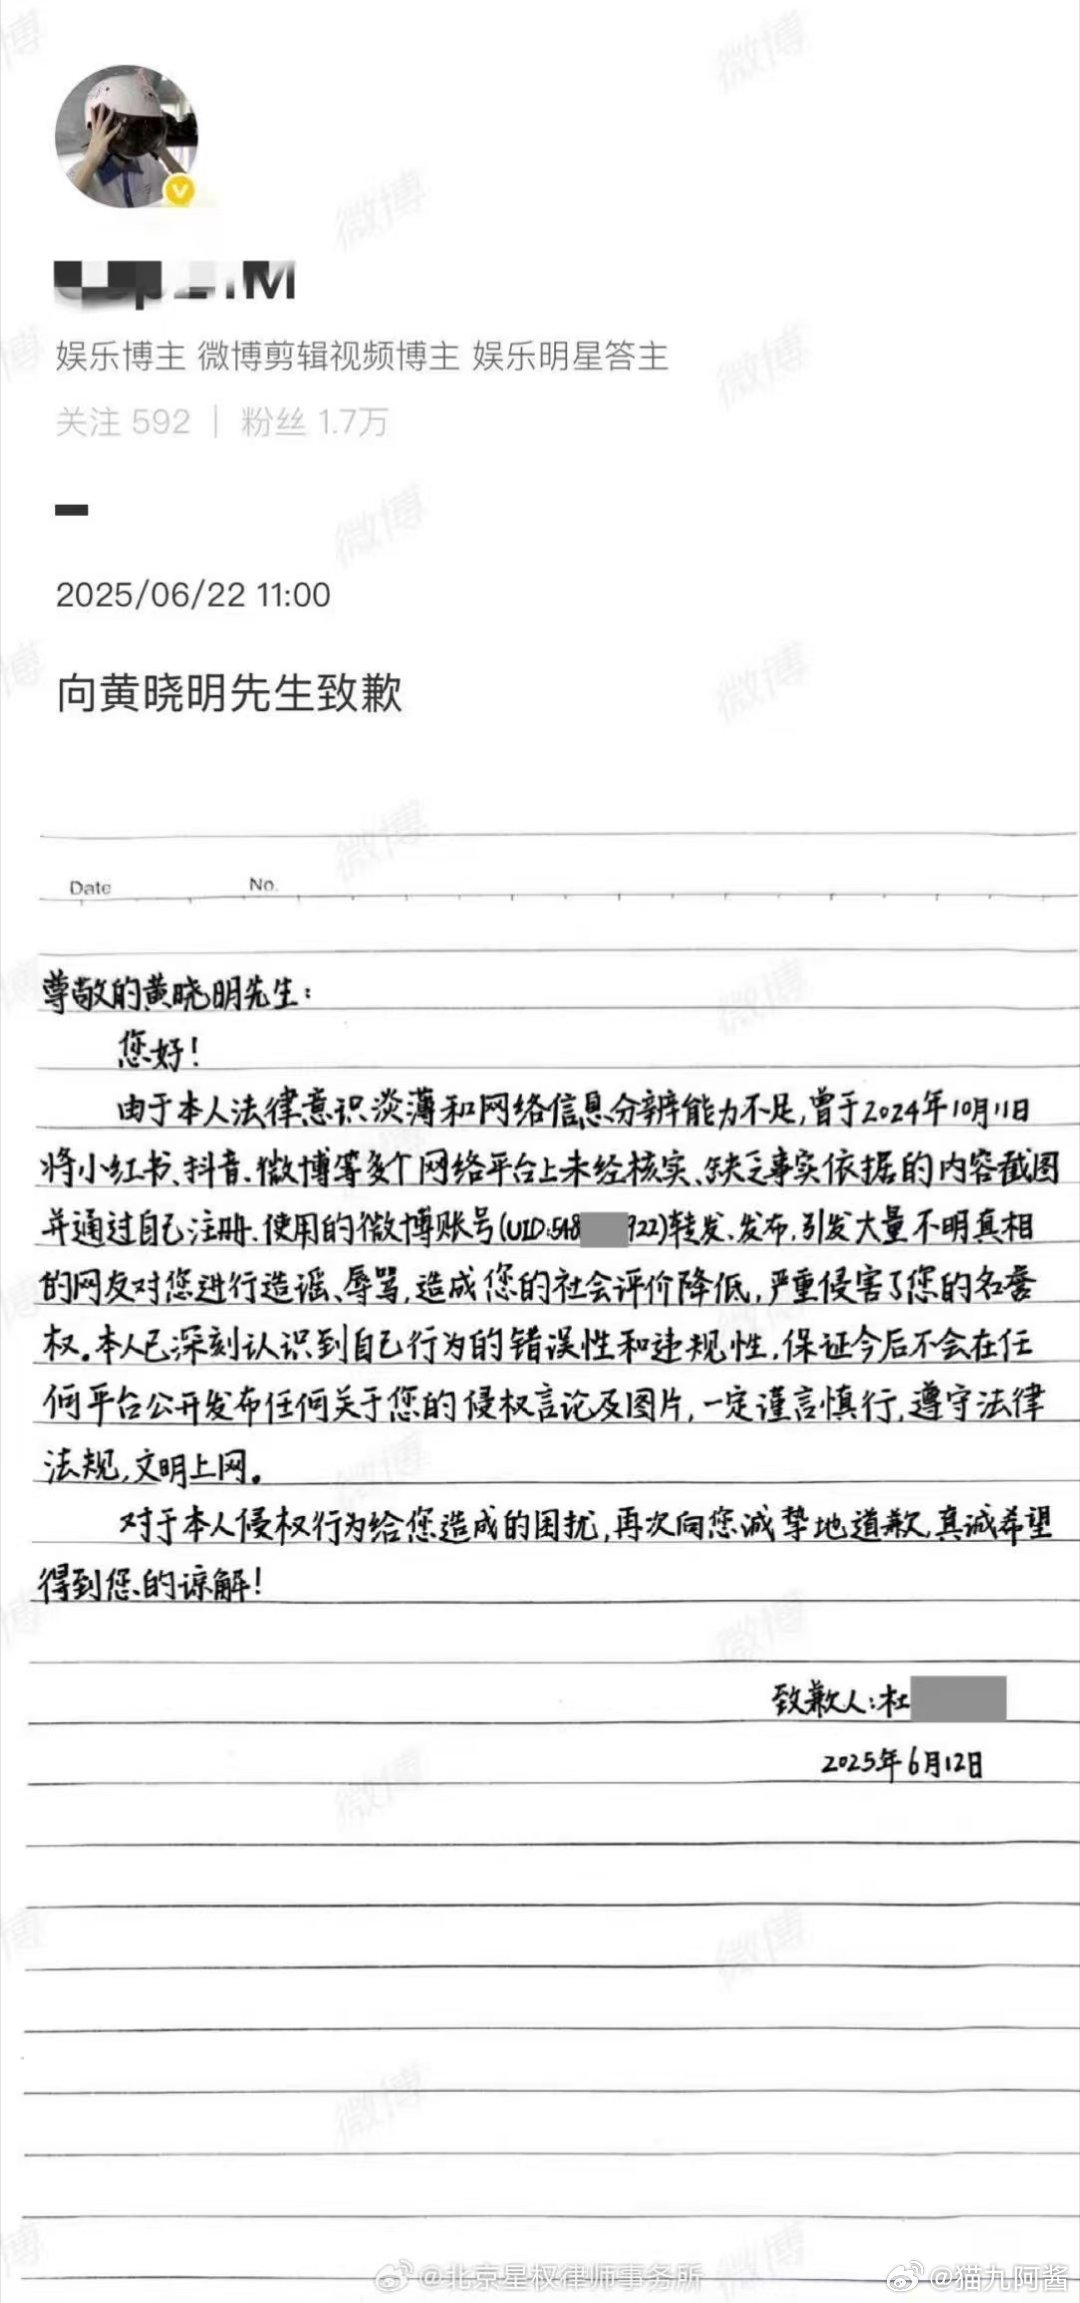 娱乐博主 微博剪辑视频博主 娱乐明星答主
关注 592 | 粉丝 1.7万
2025/06/22 11:00
向黄晓明先生致歉
Date No.
尊敬的黄晓明先生：
您好！
由于本人法律意识淡薄和网络信息分辨能力不足，曾于2024年10月11日
将小红书、抖音、微博等多个网络平台上未经核实、缺乏事实依据的内容截图
并通过自己注册、使用的微博账号(UID:548 922)转发、发布，引发大量不明真相
的网友对您进行造谣、辱骂，造成您的社会评价降低，严重侵害了您的名誉
权。本人已深刻认识到自己行为的错误性和违规性，保证今后不会在任
何平台公开发布任何关于您的侵权言论及图片，一定谨言慎行，遵守法律
法规，文明上网。
对于本人侵权行为给您造成的困扰，再次向您诚挚地道歉，真诚希望
得到您的谅解！
致歉人：杜
2025年6月12日
@北京星权律师事务所
@猫九阿酱